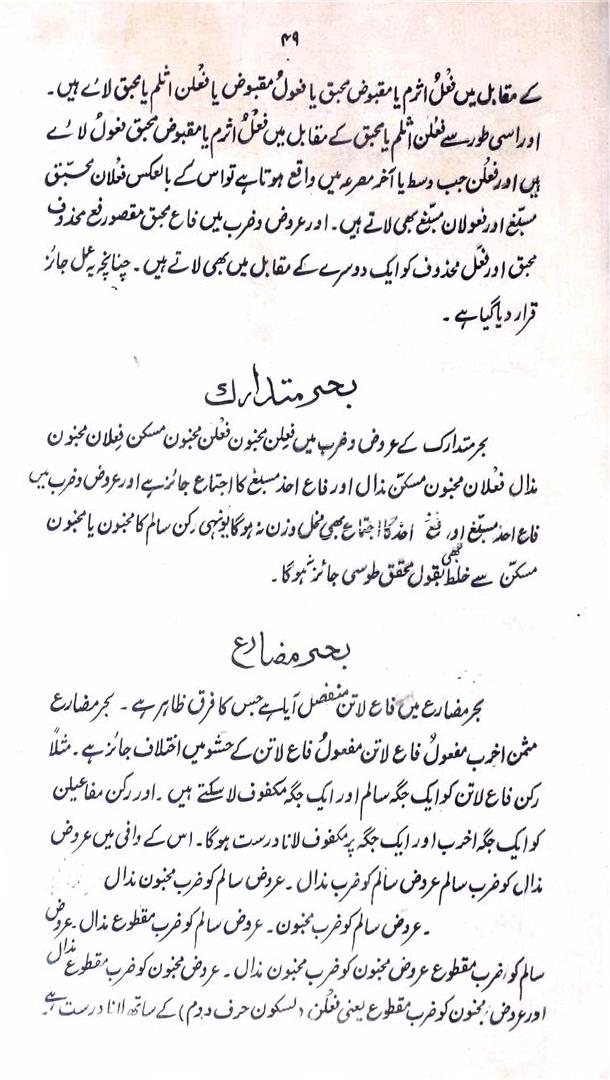 ۴۹
کے مقابل میں فعْلُ اثرم یا مقبوض محبق یا فعولُ مقبوض یا فعْلن اثلم یا محبق لائے ہیں۔
اور اسی طور سے فعْلن اثلم یا محبق کے مقابل میں فعْلُ اثرم یا مقبوض محبق فعولُ لائے
ہیں اور فعْلن جب وسط یا آخر مصرعہ میں واقع ہوتا ہے تو اس کے بالعکس فعْلان محبّق
مسبّغ اور فعولان مسبّغ بھی لاتے ہیں۔ اور عروض و ضرب میں فاع محبق مقصور فع محذوف
محبق اور فعَل محذوف کو ایک دوسرے کے مقابل میں بھی لاتے ہیں۔ چنانچہ یہ عمل جائز
قرار دیا گیا ہے۔
بحر متدارک
بحر متدارک کے عروض و ضرب میں فعِلن مخبون فعْلن مخبون مسکن فعِلان مخبون
مذال فعْلان مخبون مسکّن مذال اور فاع احذ مسبغ کا اجتماع جائز ہے اور عروض و ضرب میں
فاع احذ مسبّغ اور فع احذ کا اجتماع بھی مخل وزن نہ ہوگا یونہی رکن سالم کا مخبون یا مخبون
مسکّن سے خلط بھی بقول محقق طوسی جائز نہ ہوگا۔
بحر مضارع
بحر مضارع میں فاع لاتن منفصل آیا ہے جس کا فرق ظاہر ہے۔ بحر مضارع
مثمن اخرب مفعولُ فاع لاتن مفعولُ فاع لاتن کے حشو میں اختلاف جائز ہے۔ مثلاً
رکن فاع لاتن کو ایک جگہ سالم اور ایک جگہ مکفوف لا سکتے ہیں۔ اور رکن مفاعیلن
کو ایک جگہ اخرب اور ایک جگہ پر مکفوف لانا درست ہوگا۔ اس کے وافی میں عروض
مذال کو ضرب سالم عروض سالم کو ضرب مذال۔ عروض سالم کو ضرب مخبون مذال
۔ عروض سالم کو ضرب مخبون۔ عروض سالم کو ضرب مقطوع مذال۔ عروض
سالم کو ضرب مقطوع عروض مخبون کو ضرب مخبون مذال۔ عروض مخبون کو ضرب مقطوع مذال
اور عروض مخبون کو ضرب مقطوع یعنی فعْلن (بسکون حرف دوم) کے ساتھ لانا درست ہے۔